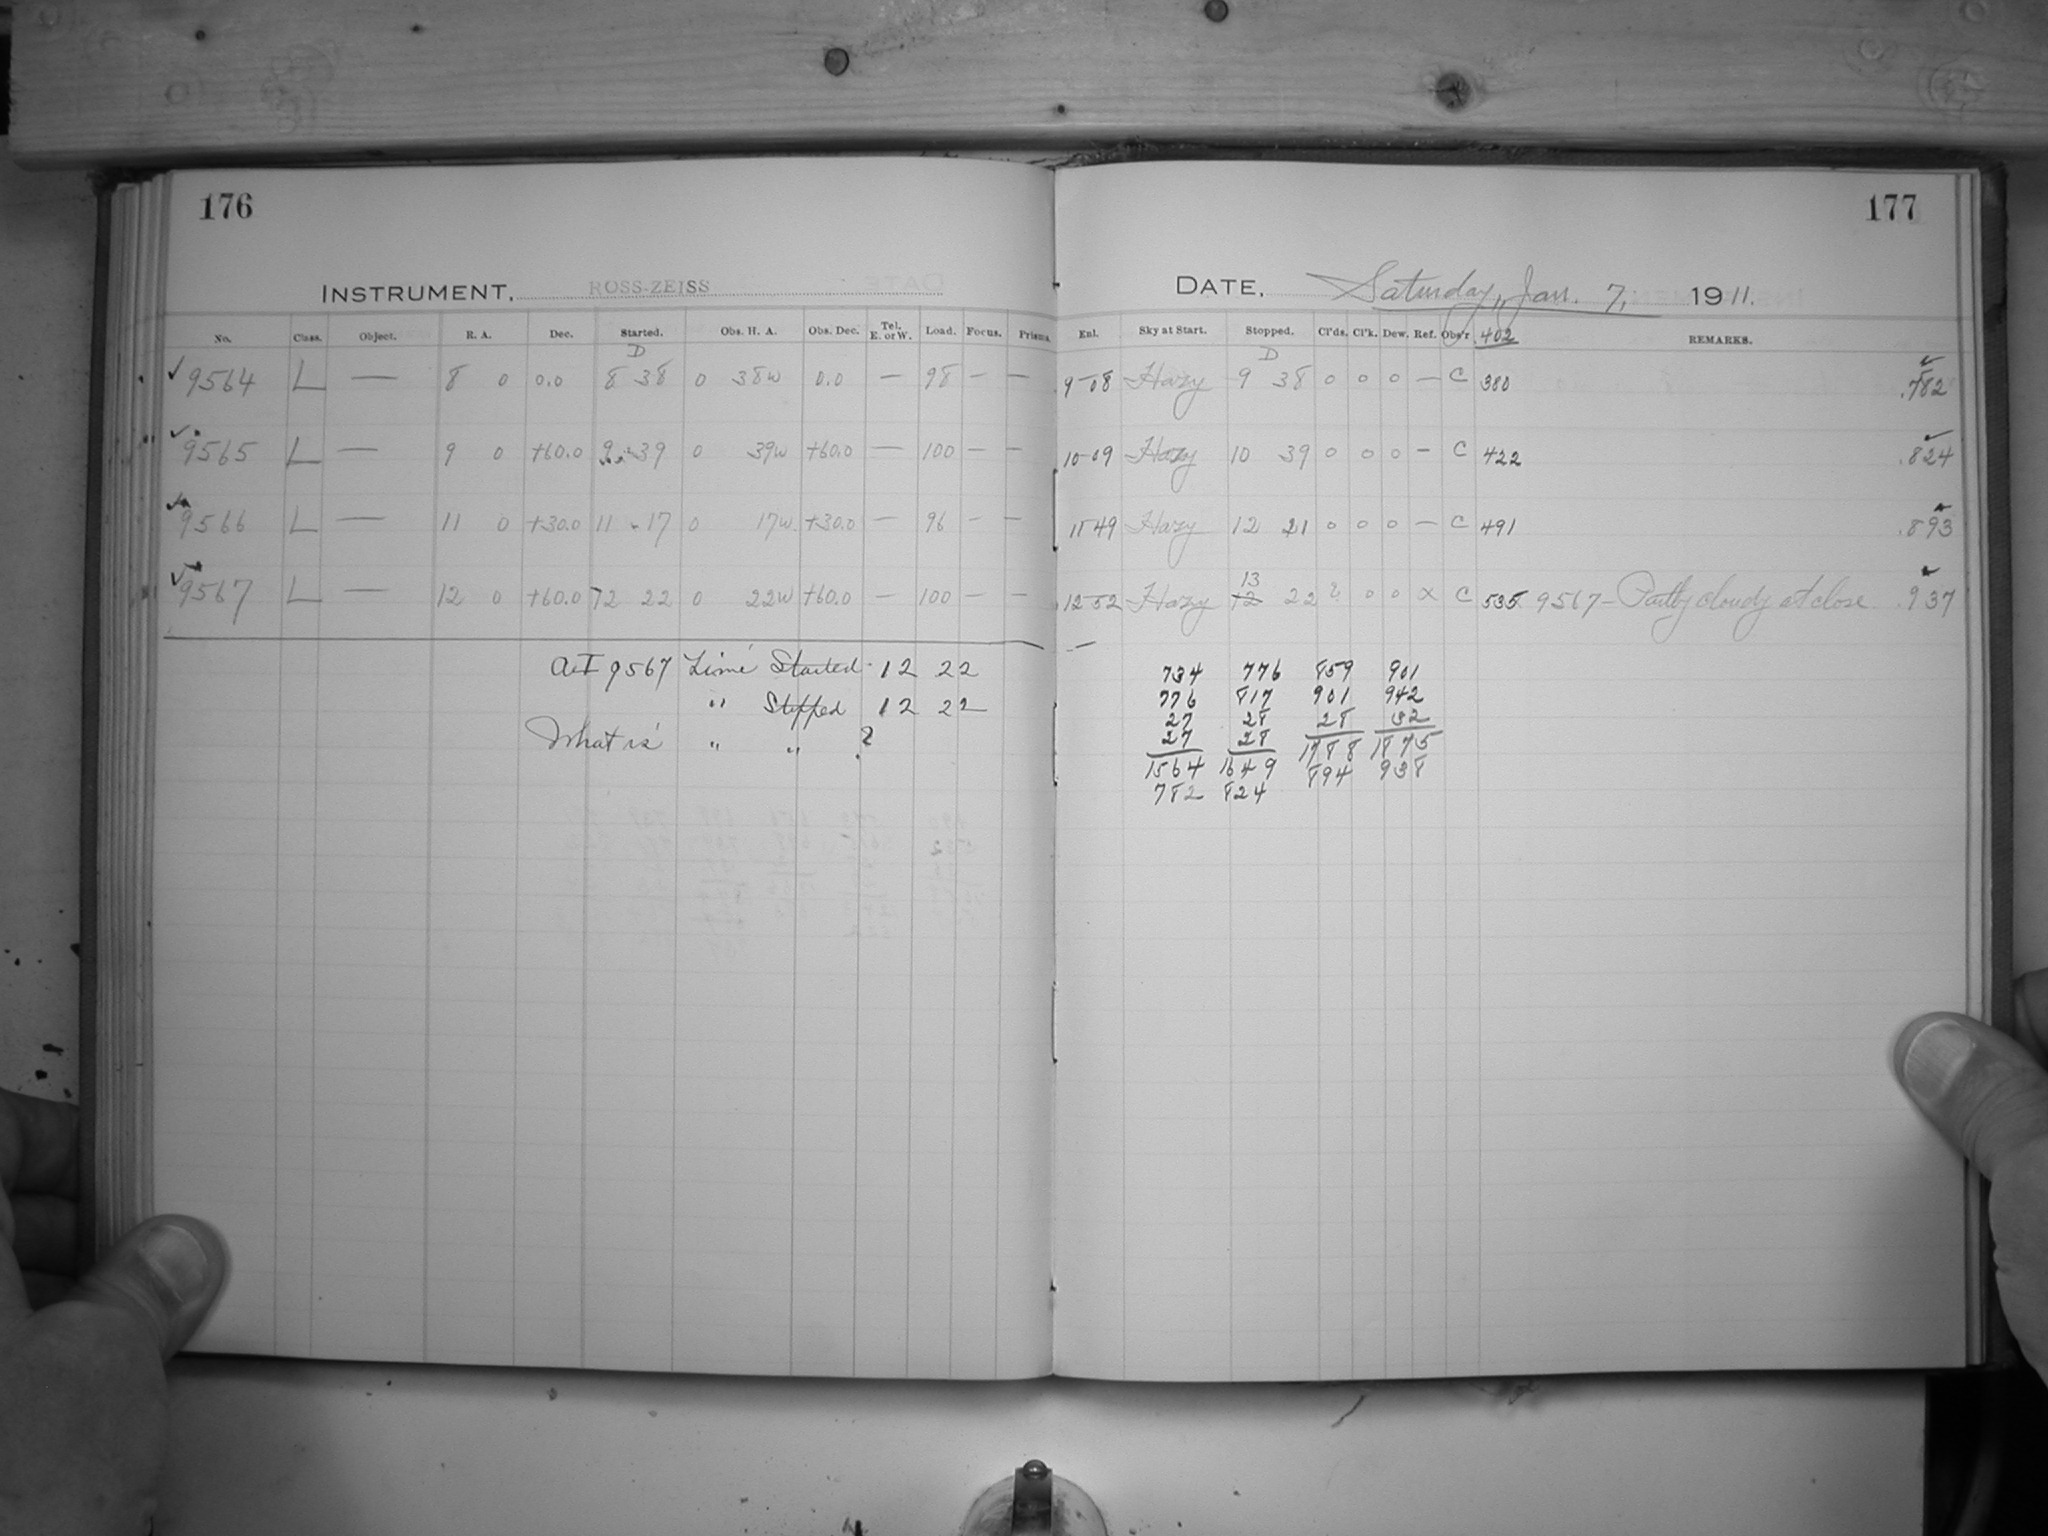 176
INSTRUMENT, ROSS-ZEISS
No. Class. Object. R. A. Dec. Started. Obs. H. A. Obs. Dec. Tel. E. or W. Load. Focus. Prisms.
D
✓ 9564 L — 8 0 0.0 8 38 0 38w 0.0 — 98 — —
✓ 9565 L — 9 0 +60.0 9 39 0 39w +60.0 — 100 — —
9566 L — 11 0 +30.0 11 17 0 17w +30.0 — 96 — —
✓ 9567 L — 12 0 +60.0 12 22 0 22w +60.0 — 100 — —
9567 Time Started 12 22
" Stopped 12 22
What is " " ?
177
DATE, Saturday, Jan. 7, 1911.
Enl. Sky at Start. Stopped. Cl'ds. Cl'k. Dew. Ref. Obs'r 402 REMARKS.
D
9-08 Hazy 9 38 0 0 0 — C 380 .782
10-09 Hazy 10 39 0 0 0 — C 422 .824
11 49 Hazy 12 21 0 0 0 — C 491 .893
13
12-52 Hazy 12 22 ? 0 0 X C 535 9567 — Partly cloudy at close .937
734 776 859 901
776 817 901 942
27 28 28 32
27 28 1788 1875
1564 1649 894 938
782 824